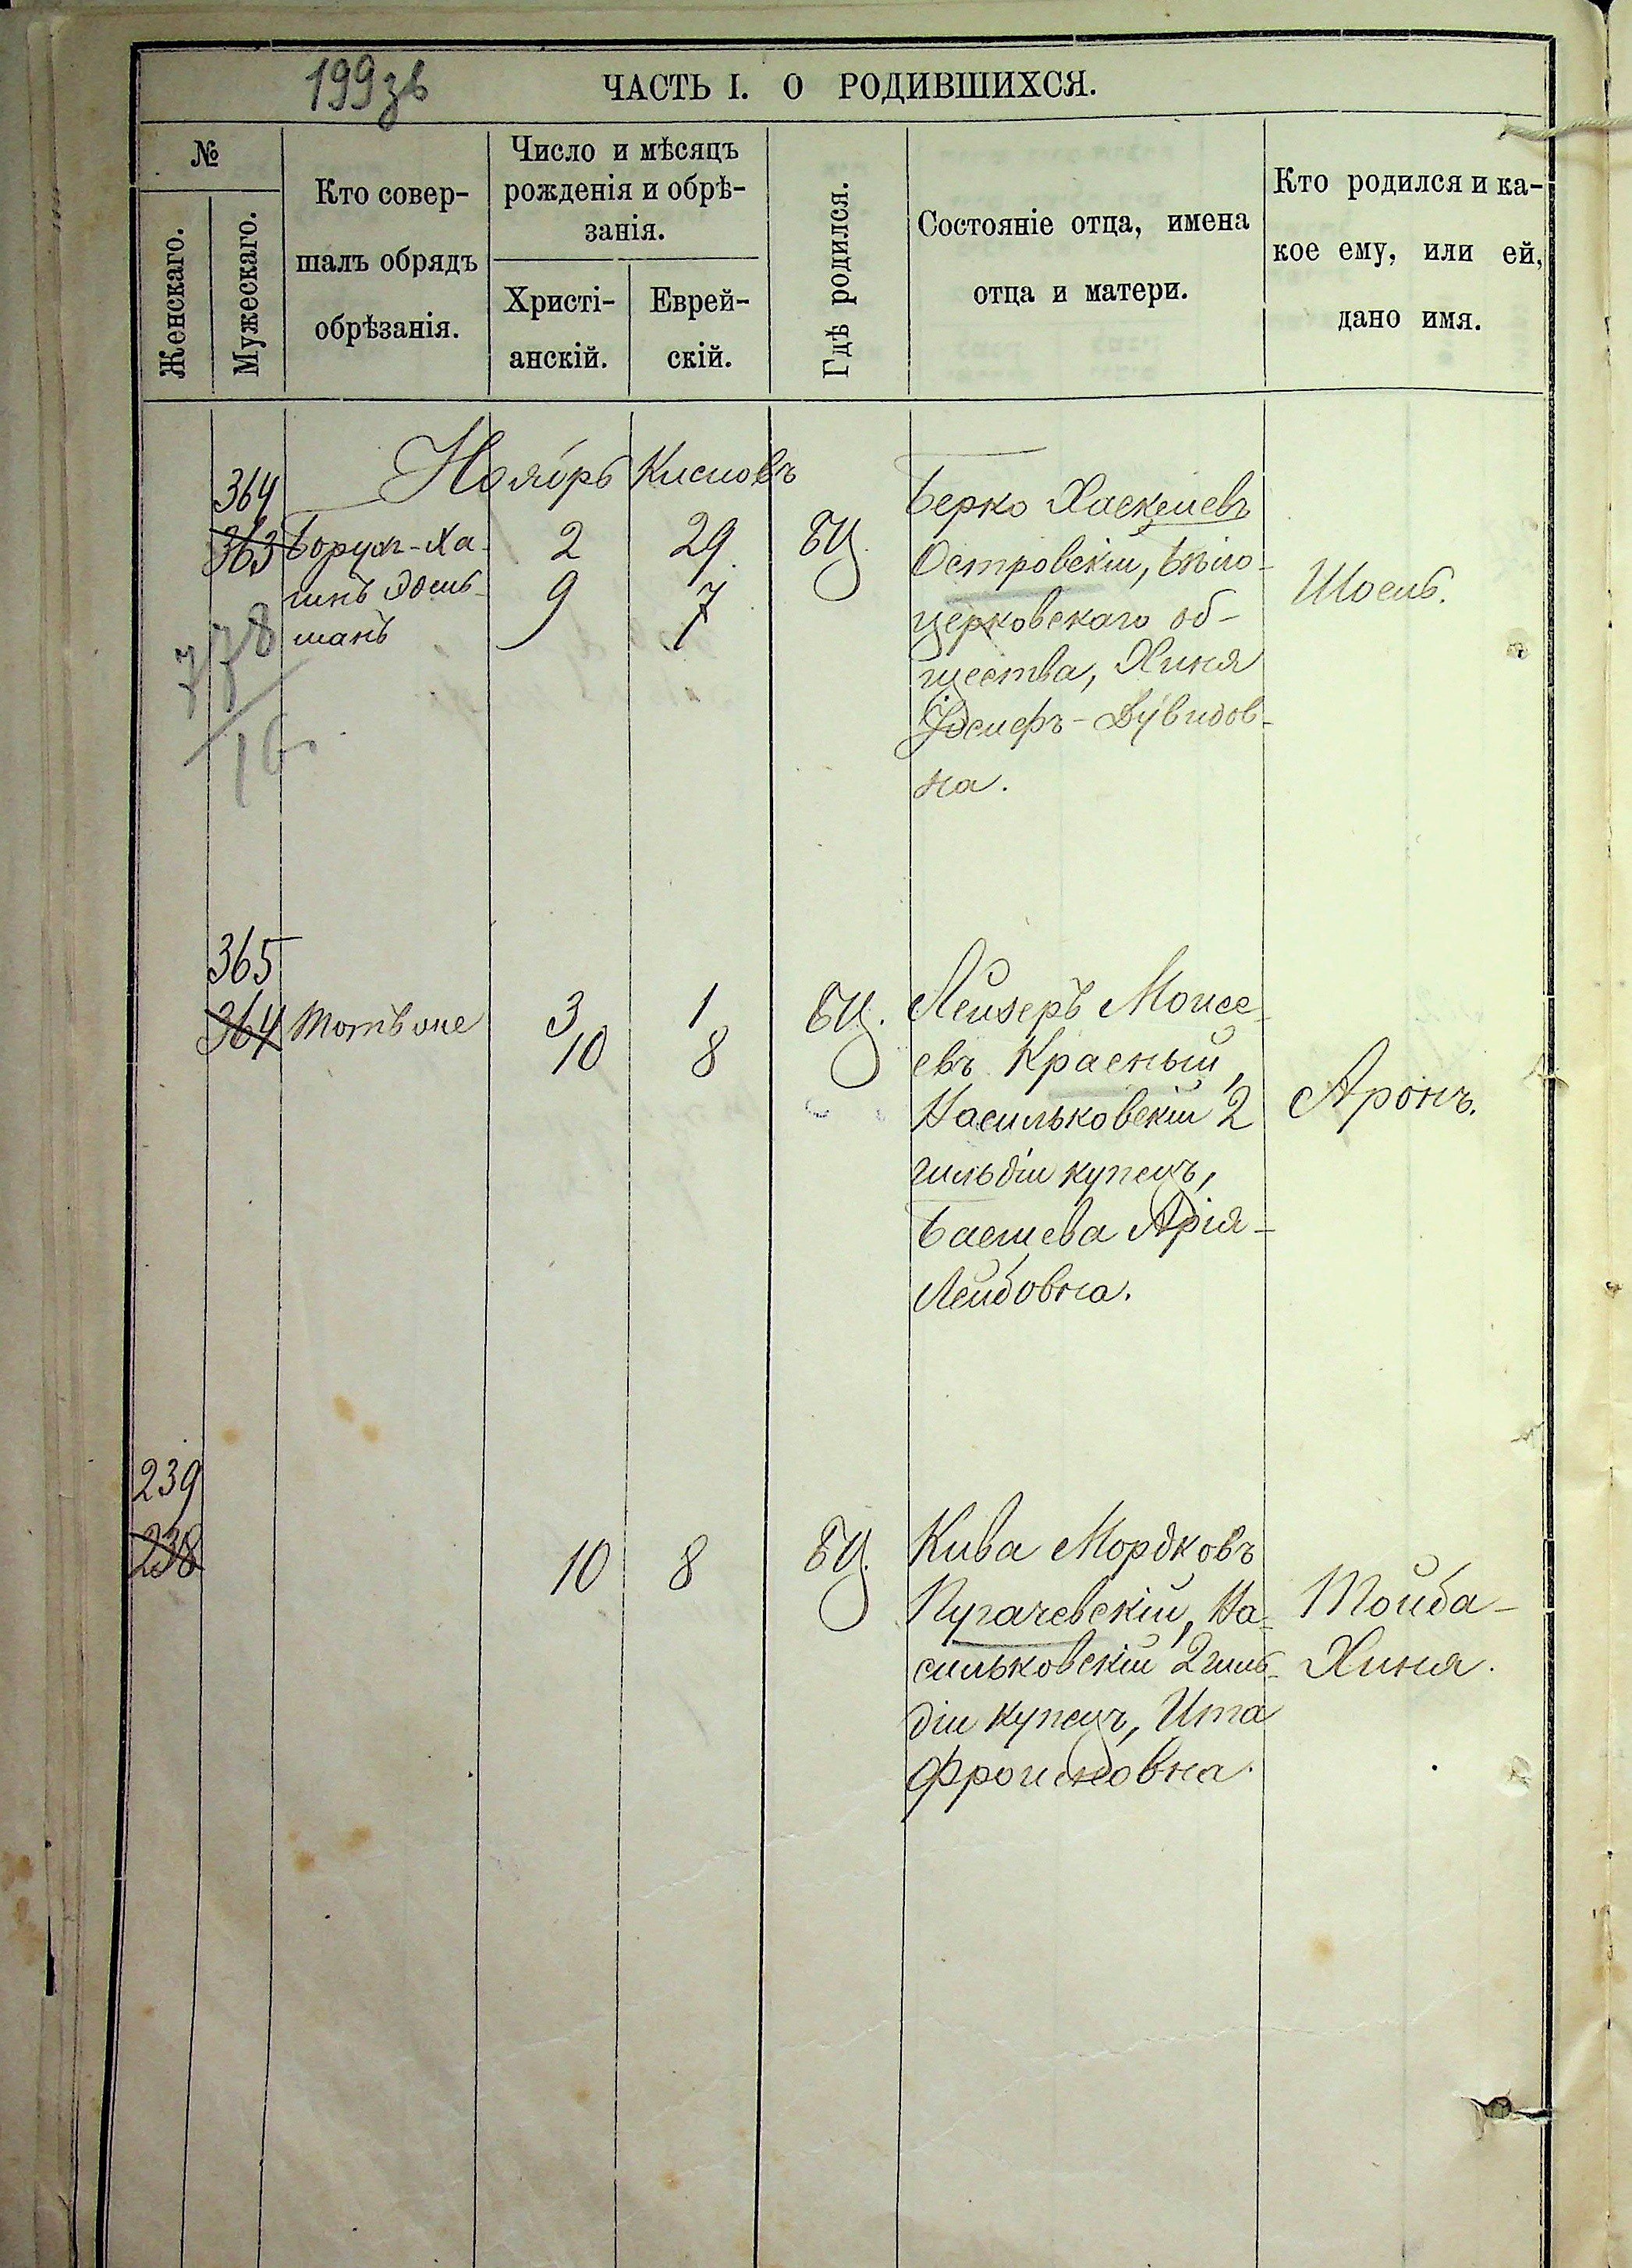 199 зв
ЧАСТЬ I. О РОДИВШИХСЯ.
№
Женскаго.
Мужескаго.
Кто совер-
шалъ обрядъ
обрѣзанія.
Число и мѣсяцъ
рожденія и обрѣ-
занія.
Христі-
анскій.
Еврей-
скій.
Гдѣ родился.
Состояніе отца, имена
отца и матери.
Кто родился и ка-
кое ему, или ей,
дано имя.
Ноябрь Кислевъ
364
363
Борухъ-Ха-
имъ
манъ
778
16
2 29
9 7
БЦ.
Берко Хаскелевъ
Островскій, Бѣло-
церковскаго об-
щества, Хиня
Іосифъ-Дувидов-
на.
Шоель.
365
364
Тотъ же
3 1
10 8
БЦ.
Лейзеръ Моисе-
евъ Красный,
Васильковскій 2
гильдіи купецъ,
Басшева Арія-
Лейбовна.
Аронъ.
239
238
10 8
БЦ.
Кива Мордковъ
Пугачевскій, Ва-
сильковскій 2 гиль-
діи купецъ, Ита
Фроимовна.
Тойба-
Хиня.